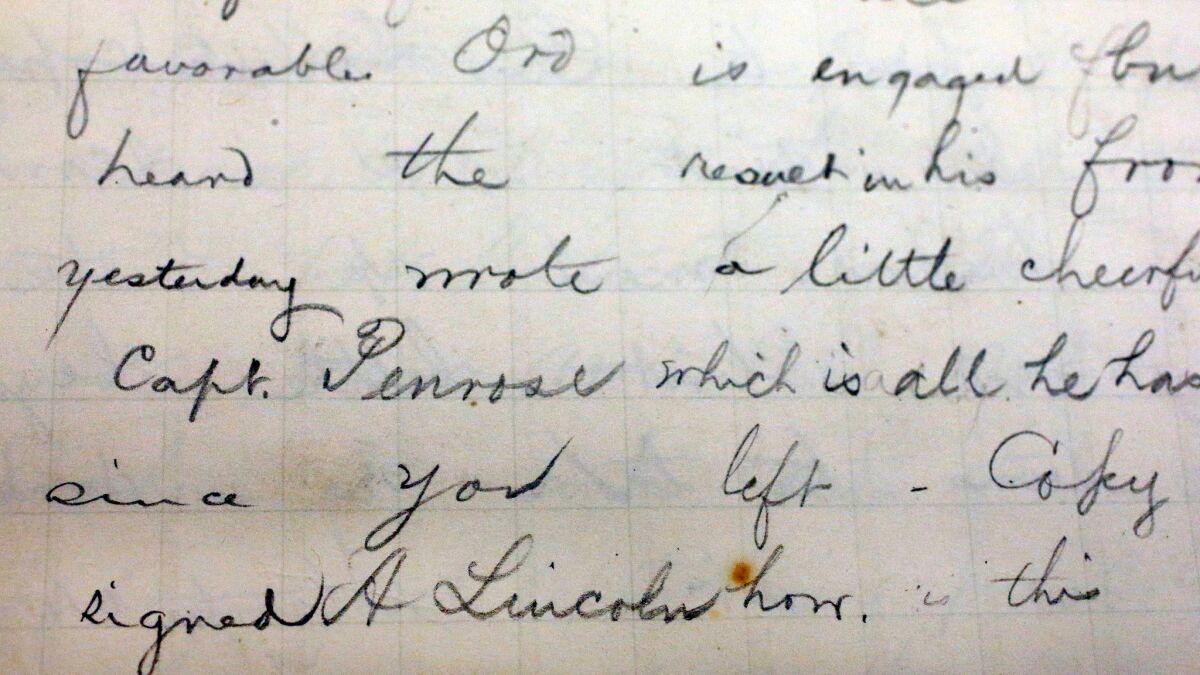 favorable Ord is engaged
heard the in his
yesterday wrote a little
Capt. Penrose which is all he has
since you left - Copy
signed A Lincoln how. is this